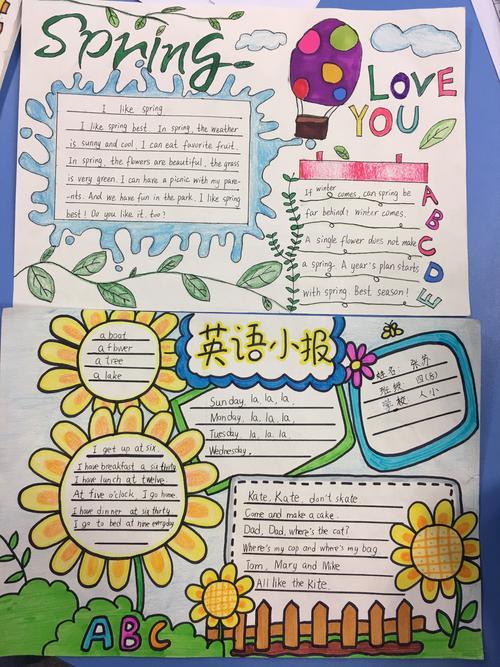 Spring
I like spring
I like spring best. In spring, the weather
is sunny and cool. I can eat favorite fruit.
In spring, the flowers are beautiful, the grass
is very green. I can have a picnic with my pare-
-nts. And we have fun in the park. I like spring
best! Do you like it, too?
LOVE
YOU
If winter comes, can spring be
far behind? winter comes.
A single flower does not make
a spring. A year's plan starts
with spring. Best season!
A
B
C
D
E
英语小报
a boat
a flower
a tree
a lake
Sunday, la, la, la,
Monday, la, la, la,
Tuesday, la, la, la,
Wednesday,
姓名: 张芬
班级: 四(8)
学校: 人小
I get up at six.
I have breakfast a six thirty
I have lunch at twelve.
At five o'clock, I go home.
I have dinner at six thirty
I go to bed at nine everyday
Kate, Kate, don't skate.
Come and make a cake.
Dad, Dad, where's the cat?
Where's my cap and where's my bag
Tom, Mary and Mike
All like the Kite.
ABC